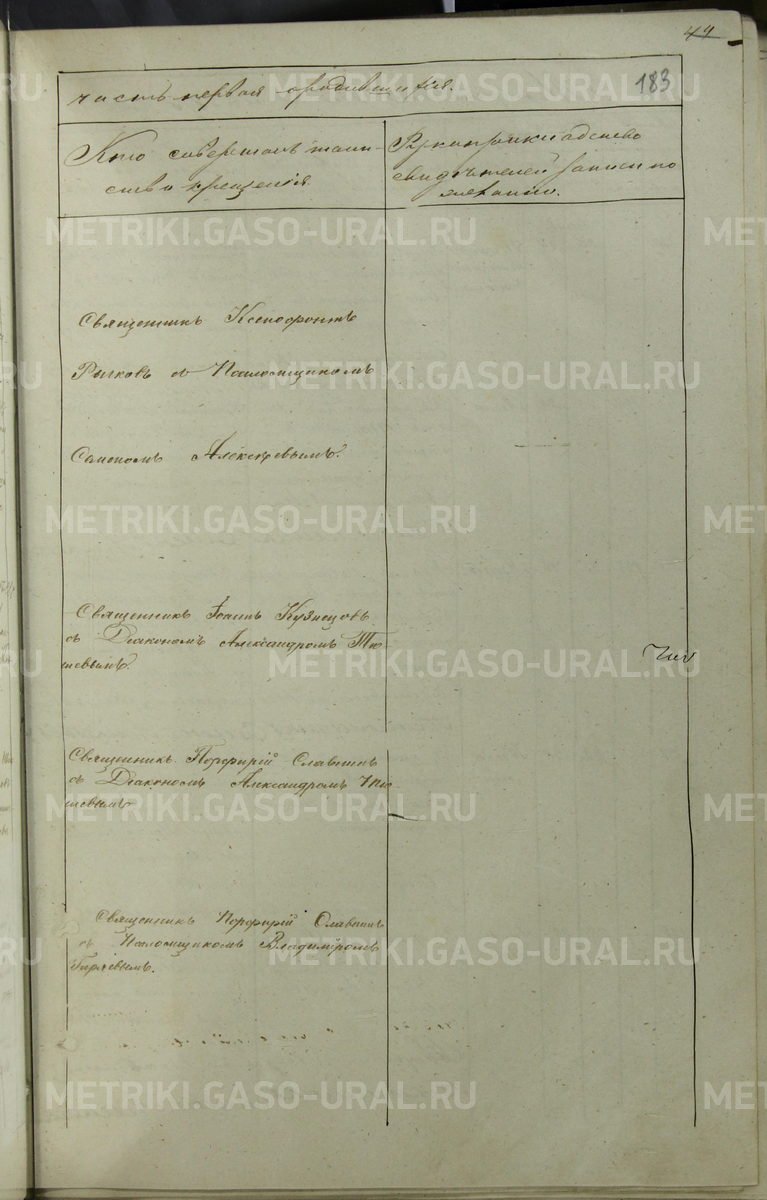 44
183
часть первая о родившихся.
Кто совершалъ таин-
ство крещенія.
Рукоприкладство
свидѣтелей записи по
желанію.
Священникъ Ксенофонтъ
Рычковъ съ Псаломщикомъ
Алексѣевымъ.
Священникъ Іоаннъ Кузнецовъ
съ Діакономъ Александромъ Тю
шевымъ.
Священникъ Порфирій Славнинъ
съ Діакономъ Александромъ Тю-
шевымъ
Священникъ Порфирій Славнинъ
съ Псаломщикомъ Владиміромъ
Гиляевымъ.
METRIKI.GASO-URAL.RU